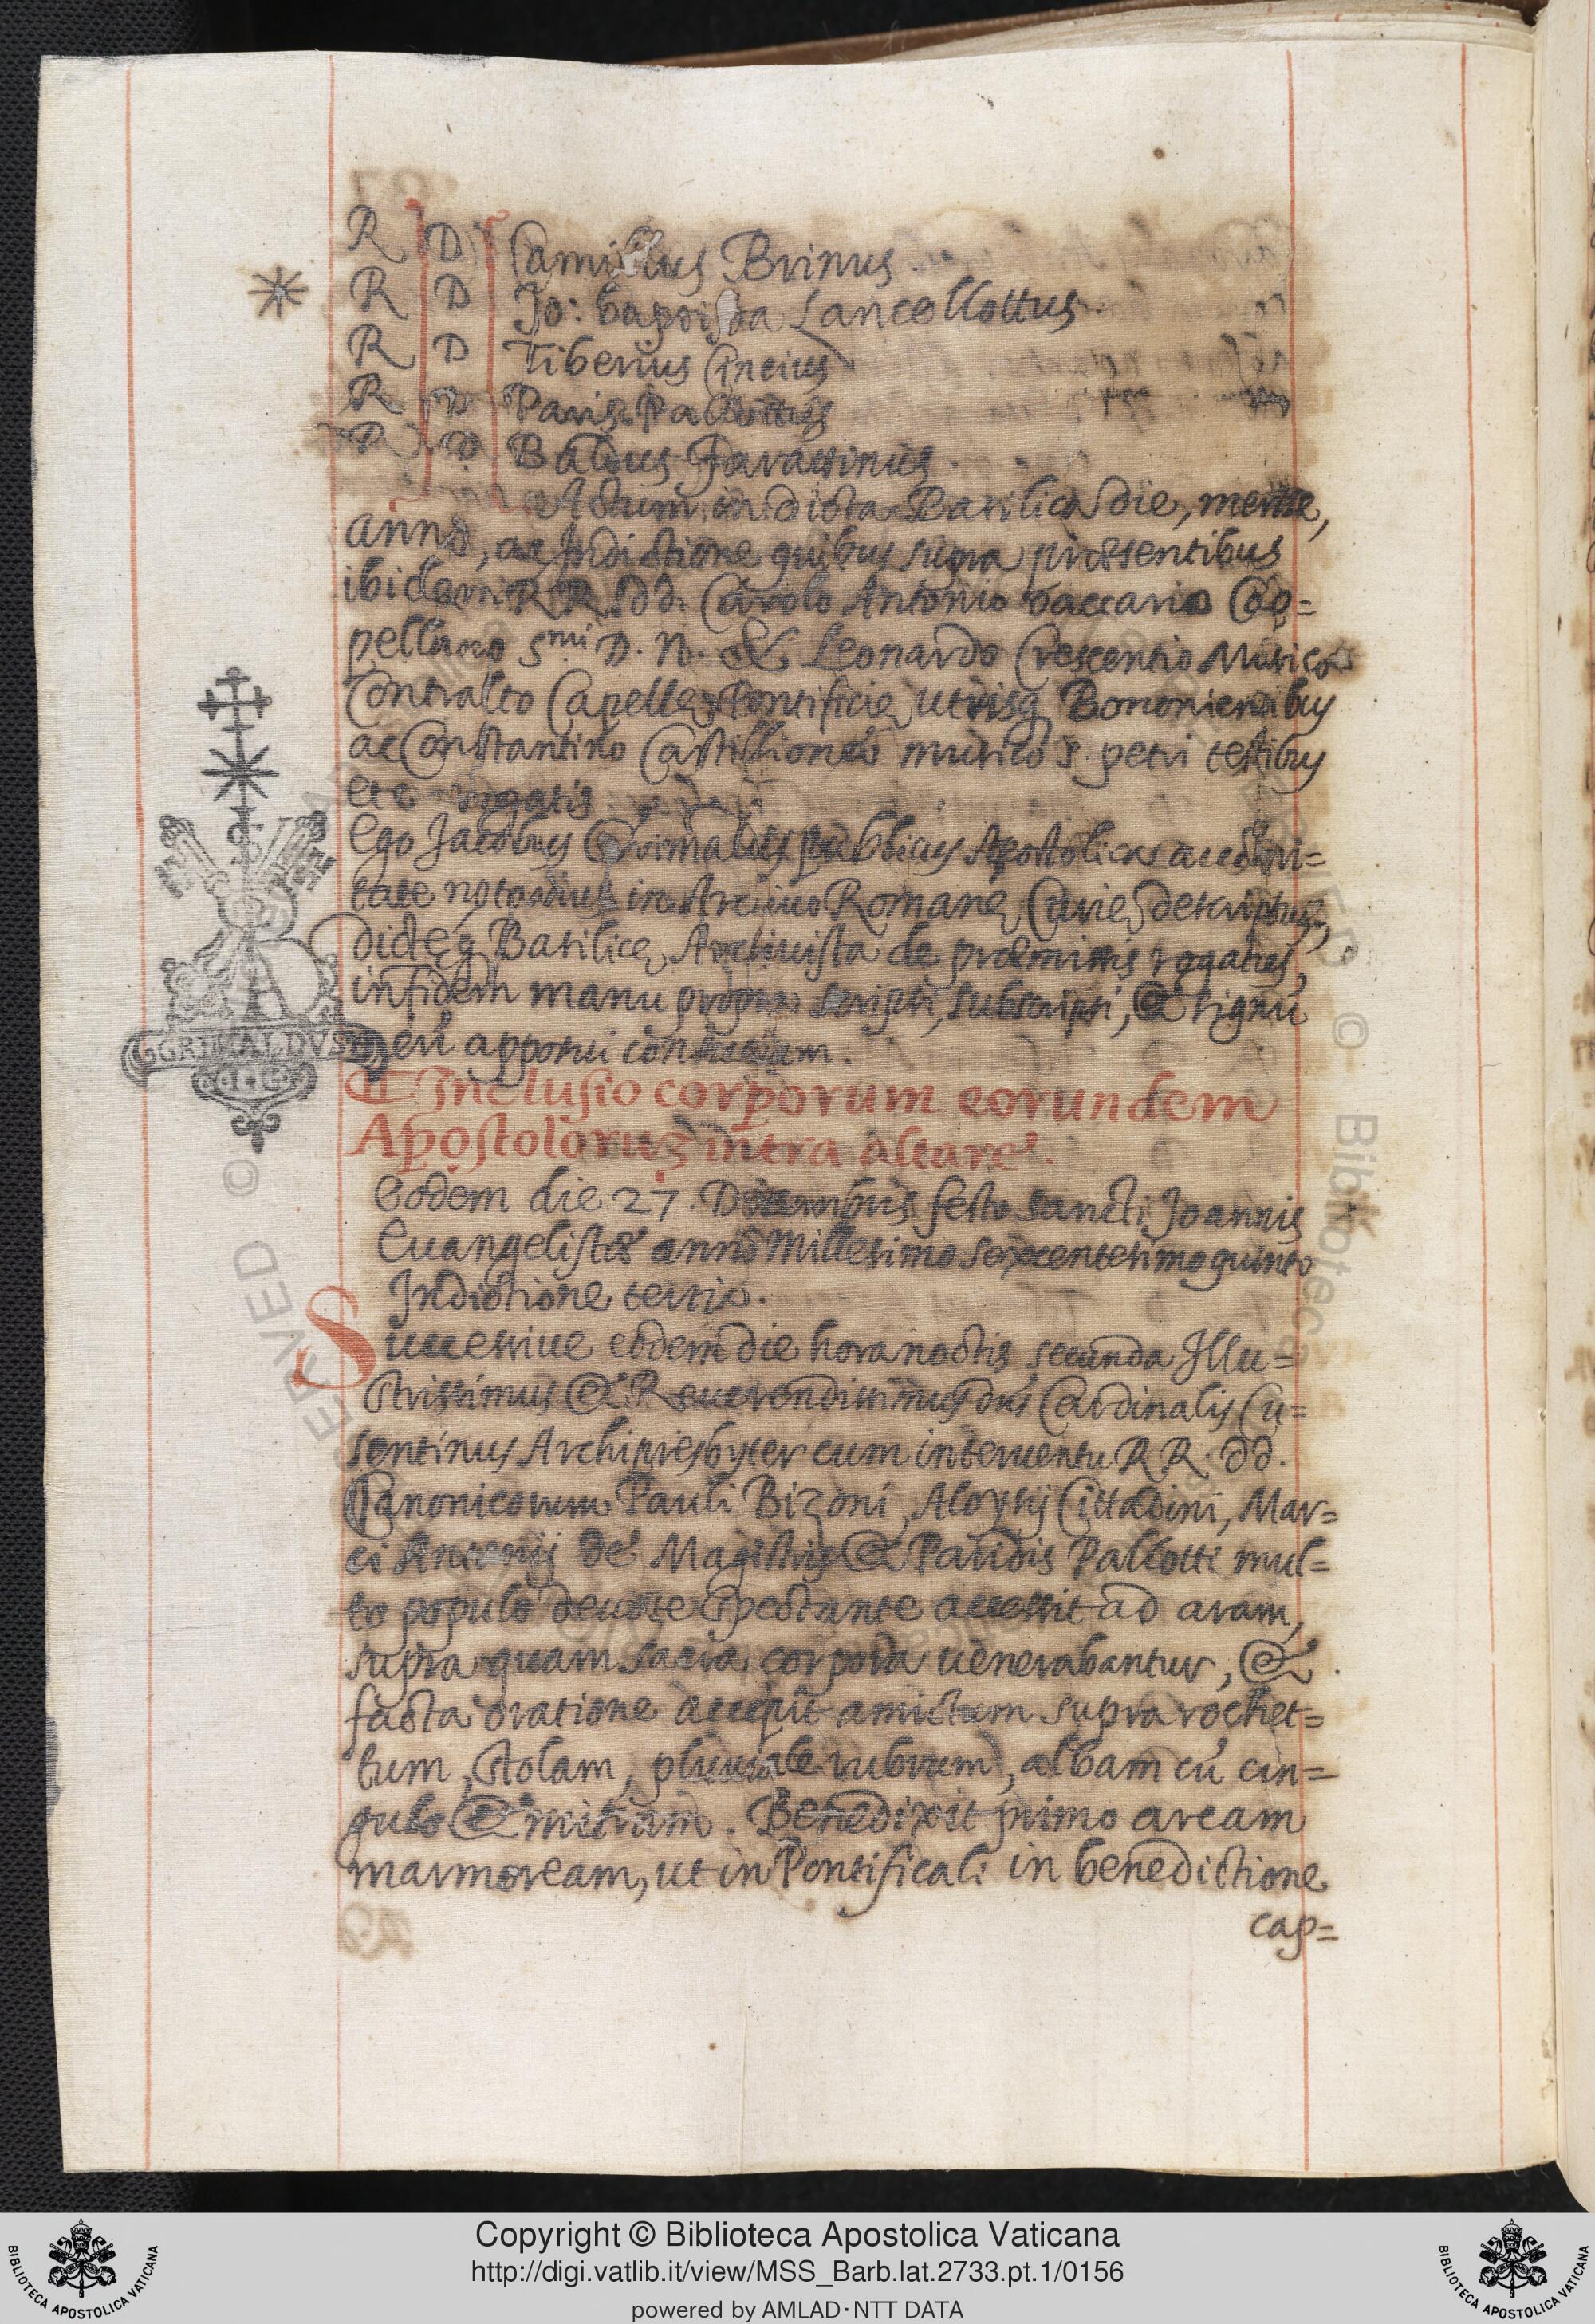 R D Camillus Brinus
R D Jo: baptista Lancellottus
R D Tiberius Cincius
R D Paris Pallottus
R D Baldus Faratinus
Actum in dicta Basilica die, mense,
anno, ac Indictione quibus supra præsentibus
ibidem RR. dd. Carolo Antonio Vaccario Cap=
pellano Smi D. N. & Leonardo Crescentio Musico
Contralto Capellę Pontificię utrisq Bononiensibus
ac Constantino Castillioneo musico S. petri testibus
etc rogatis
Ego Jacobus Grimaldus publicus Apostolica auctori=
tate notarius in Archiuo Romanę Curię descriptus,
dictęq Basilicę Archiuista de præmissis rogatus,
in fidem manu propria scripsi, subscripsi, & signū
meū apposui consuetum.
GRIMALDVS
Inclusio corporum eorundem
Apostoloruʒ intra altare.
Eodem die 27. Decembris festo sancti Joannis
Euangelistæ anno Millesimo sexcentesimo quinto
Indictione tertia.
Successiue eodem die hora noctis secunda Illu=
strissimus & Reuerendissimus dn̄s Cardinalis Cu=
sentinus Archipresbyter cum interuentu RR. dd.
Canonicorum Pauli Bizoni, Aloysij Cittadini, Mar=
ci Antonij de Magistris & Paridis Pallotti mul=
to populo deuote spectante accessit ad aram,
supra quam sacra corpora uenerabantur, &
facta oratione accepit amictum supra rochet=
tum, stolam, pluuiale rubrum, albam cū cin=
gulo & mitram. Benedixit primo arcam
marmoream, ut in Pontificali in benedictione
cap=
Copyright © Biblioteca Apostolica Vaticana
http://digi.vatlib.it/view/MSS_Barb.lat.2733.pt.1/0156
powered by AMLAD·NTT DATA
BIBLIOTECA APOSTOLICA VATICANA
BIBLIOTECA APOSTOLICA VATICANA